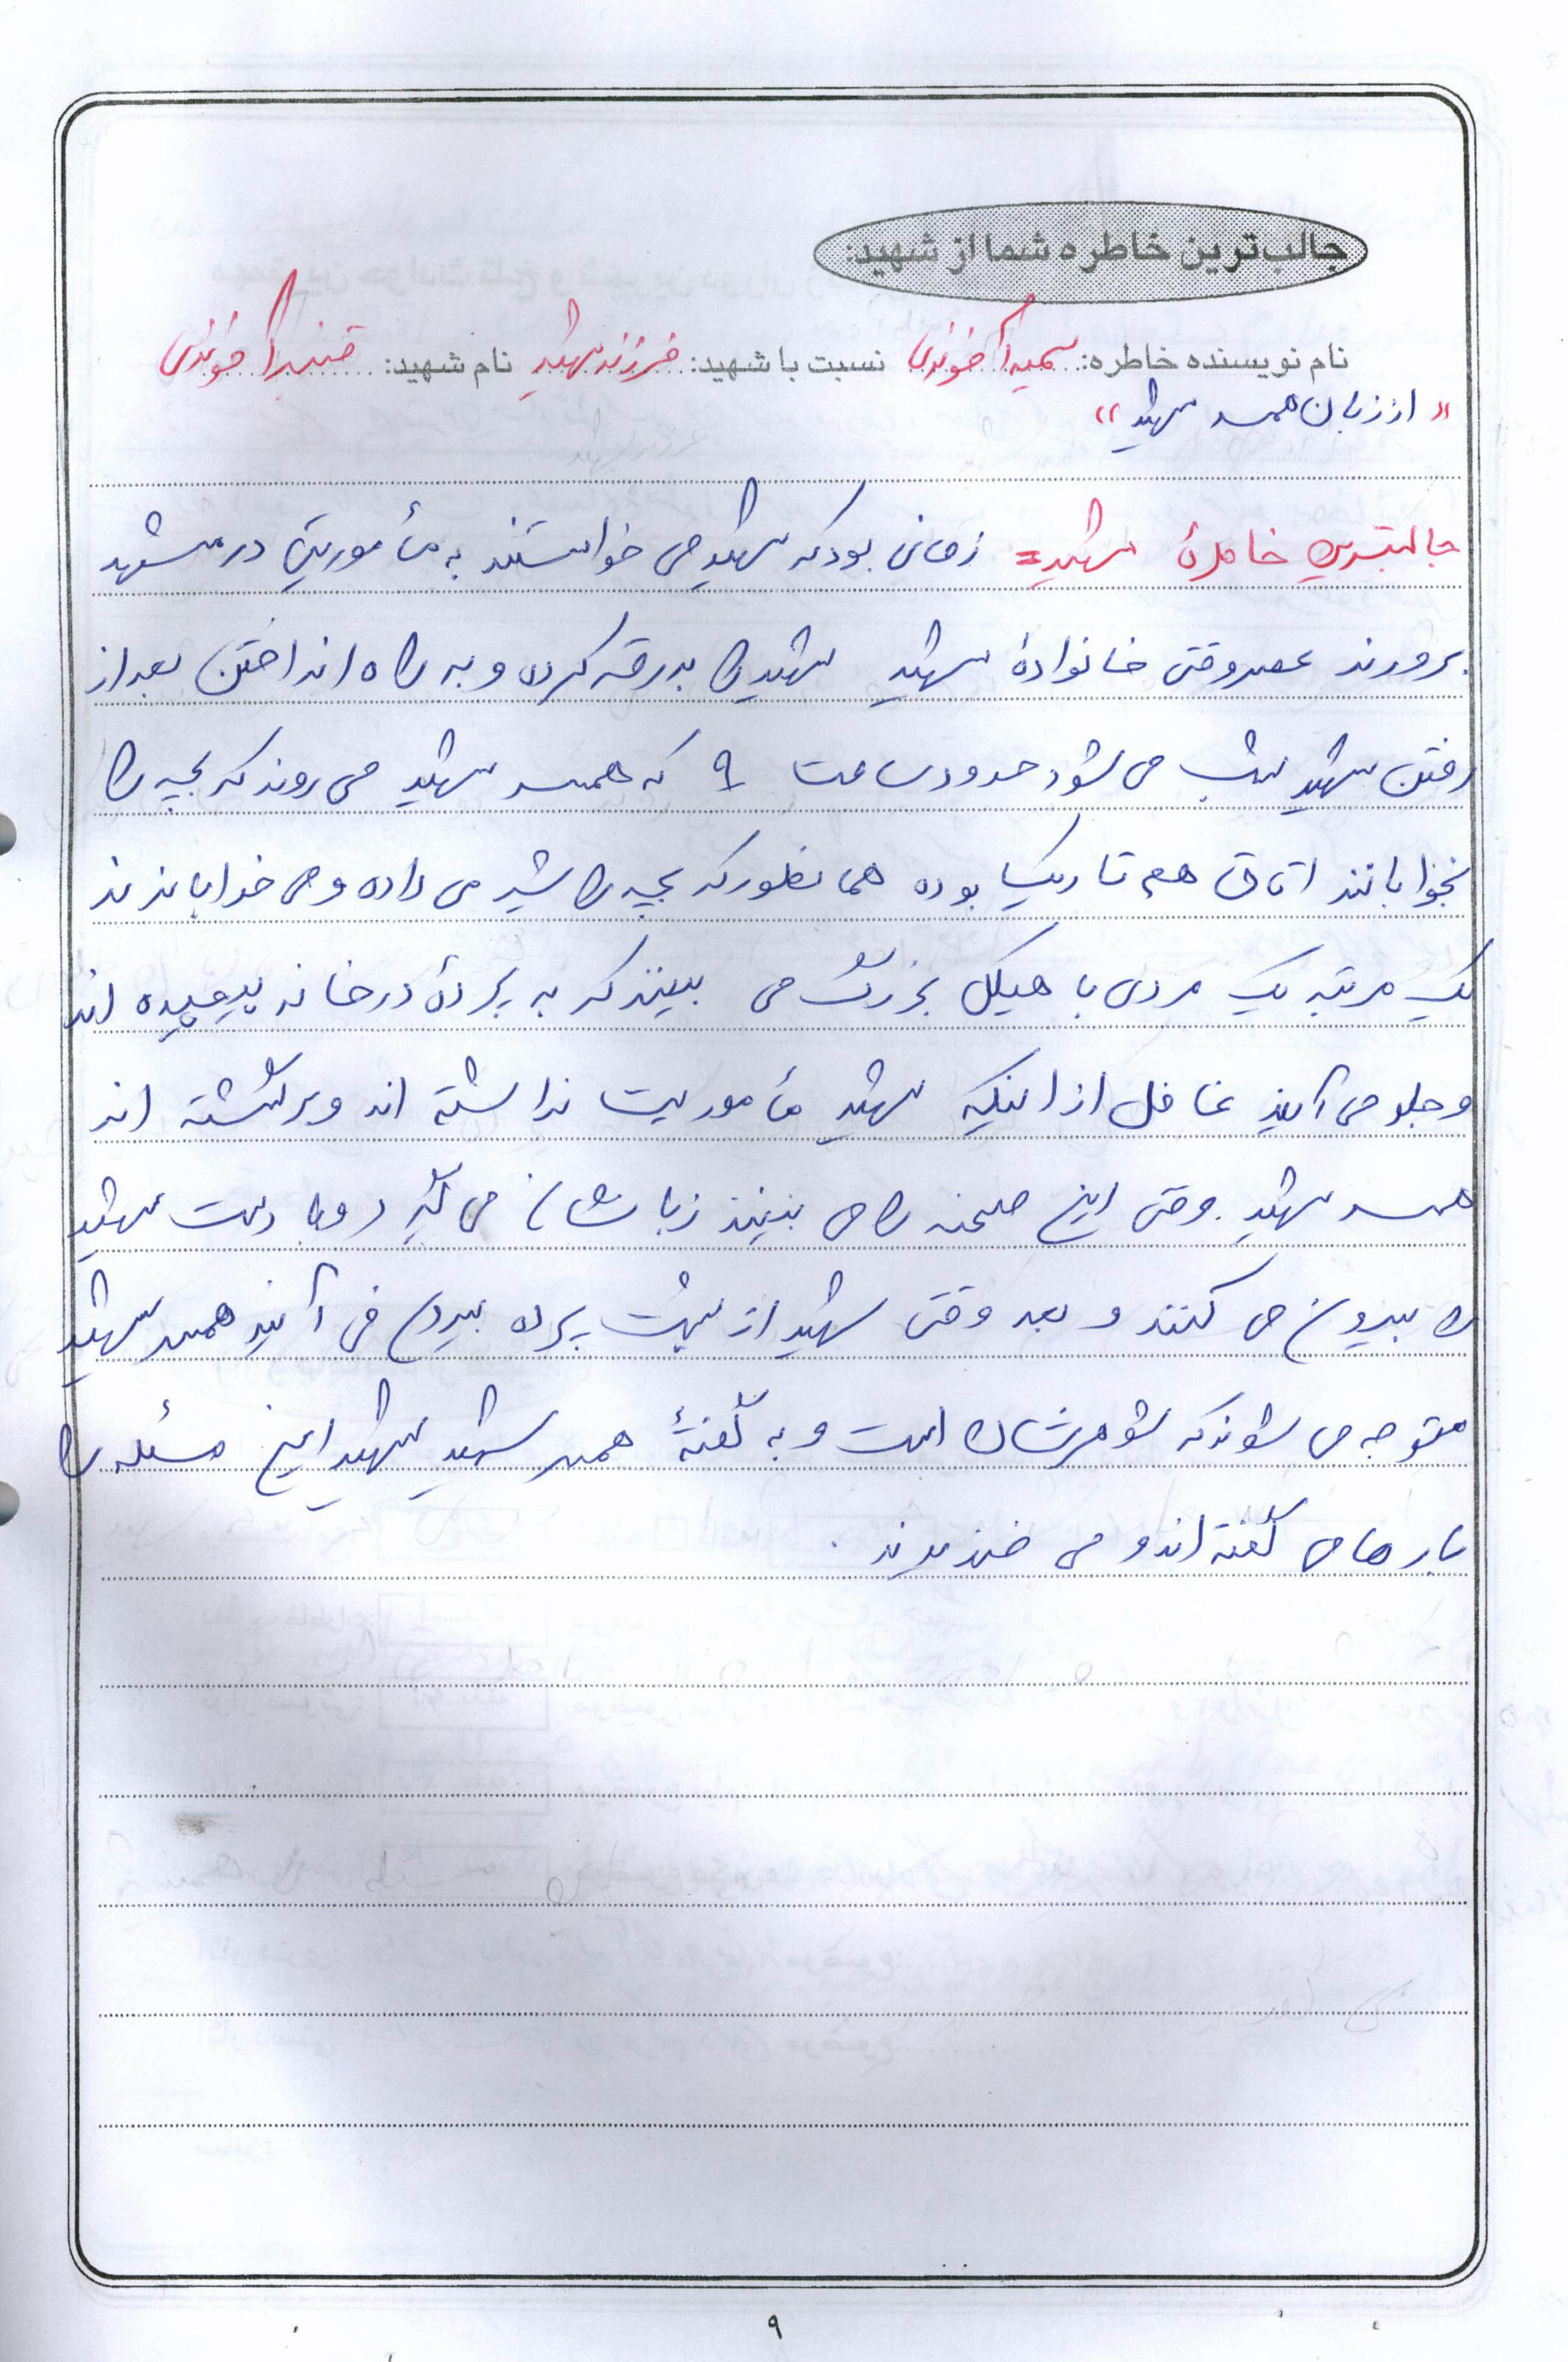 جالب‌ترین خاطره شما از شهید:
نام نویسنده خاطره: سمیرا آخوندی نسبت با شهید: فرزند شهید نام شهید: قنبر آخوندی
« از زبان همسر شهید »
جالبترین خاطرهٔ شهید = زمانی بود که شهید می خواستند به مأموریتی در مشهد
بروند عصر وقتی خانوادهٔ شهید شهید را بدرقه کرده و به راه انداختن بعد از
رفتن شهید شب می شود حدود ساعت ۹ که همسر شهید می روند که بچه را
بخوابانند اتاق هم تاریک بوده همانطور که بچه را شیر می داده و می خواباندند
یک مرتبه یک مردی با هیکل بزرگ می بینند که به پردهٔ در خانه پیچیده اند
و جلو می آیند غافل از اینکه شهید مأموریت نداشته اند و برگشته اند
همسر شهید وقتی این صحنه را می بینند زبانشان می گیرد و دست شهید
را بیرون می کنند و بعد وقتی شهید از پشت پرده بیرون می آیند همسر شهید
متوجه می شوند که شوهرشان است و به گفتهٔ همسر شهید شهید این مسئله را
بارها می گفته اند و می خندیدند .
۹